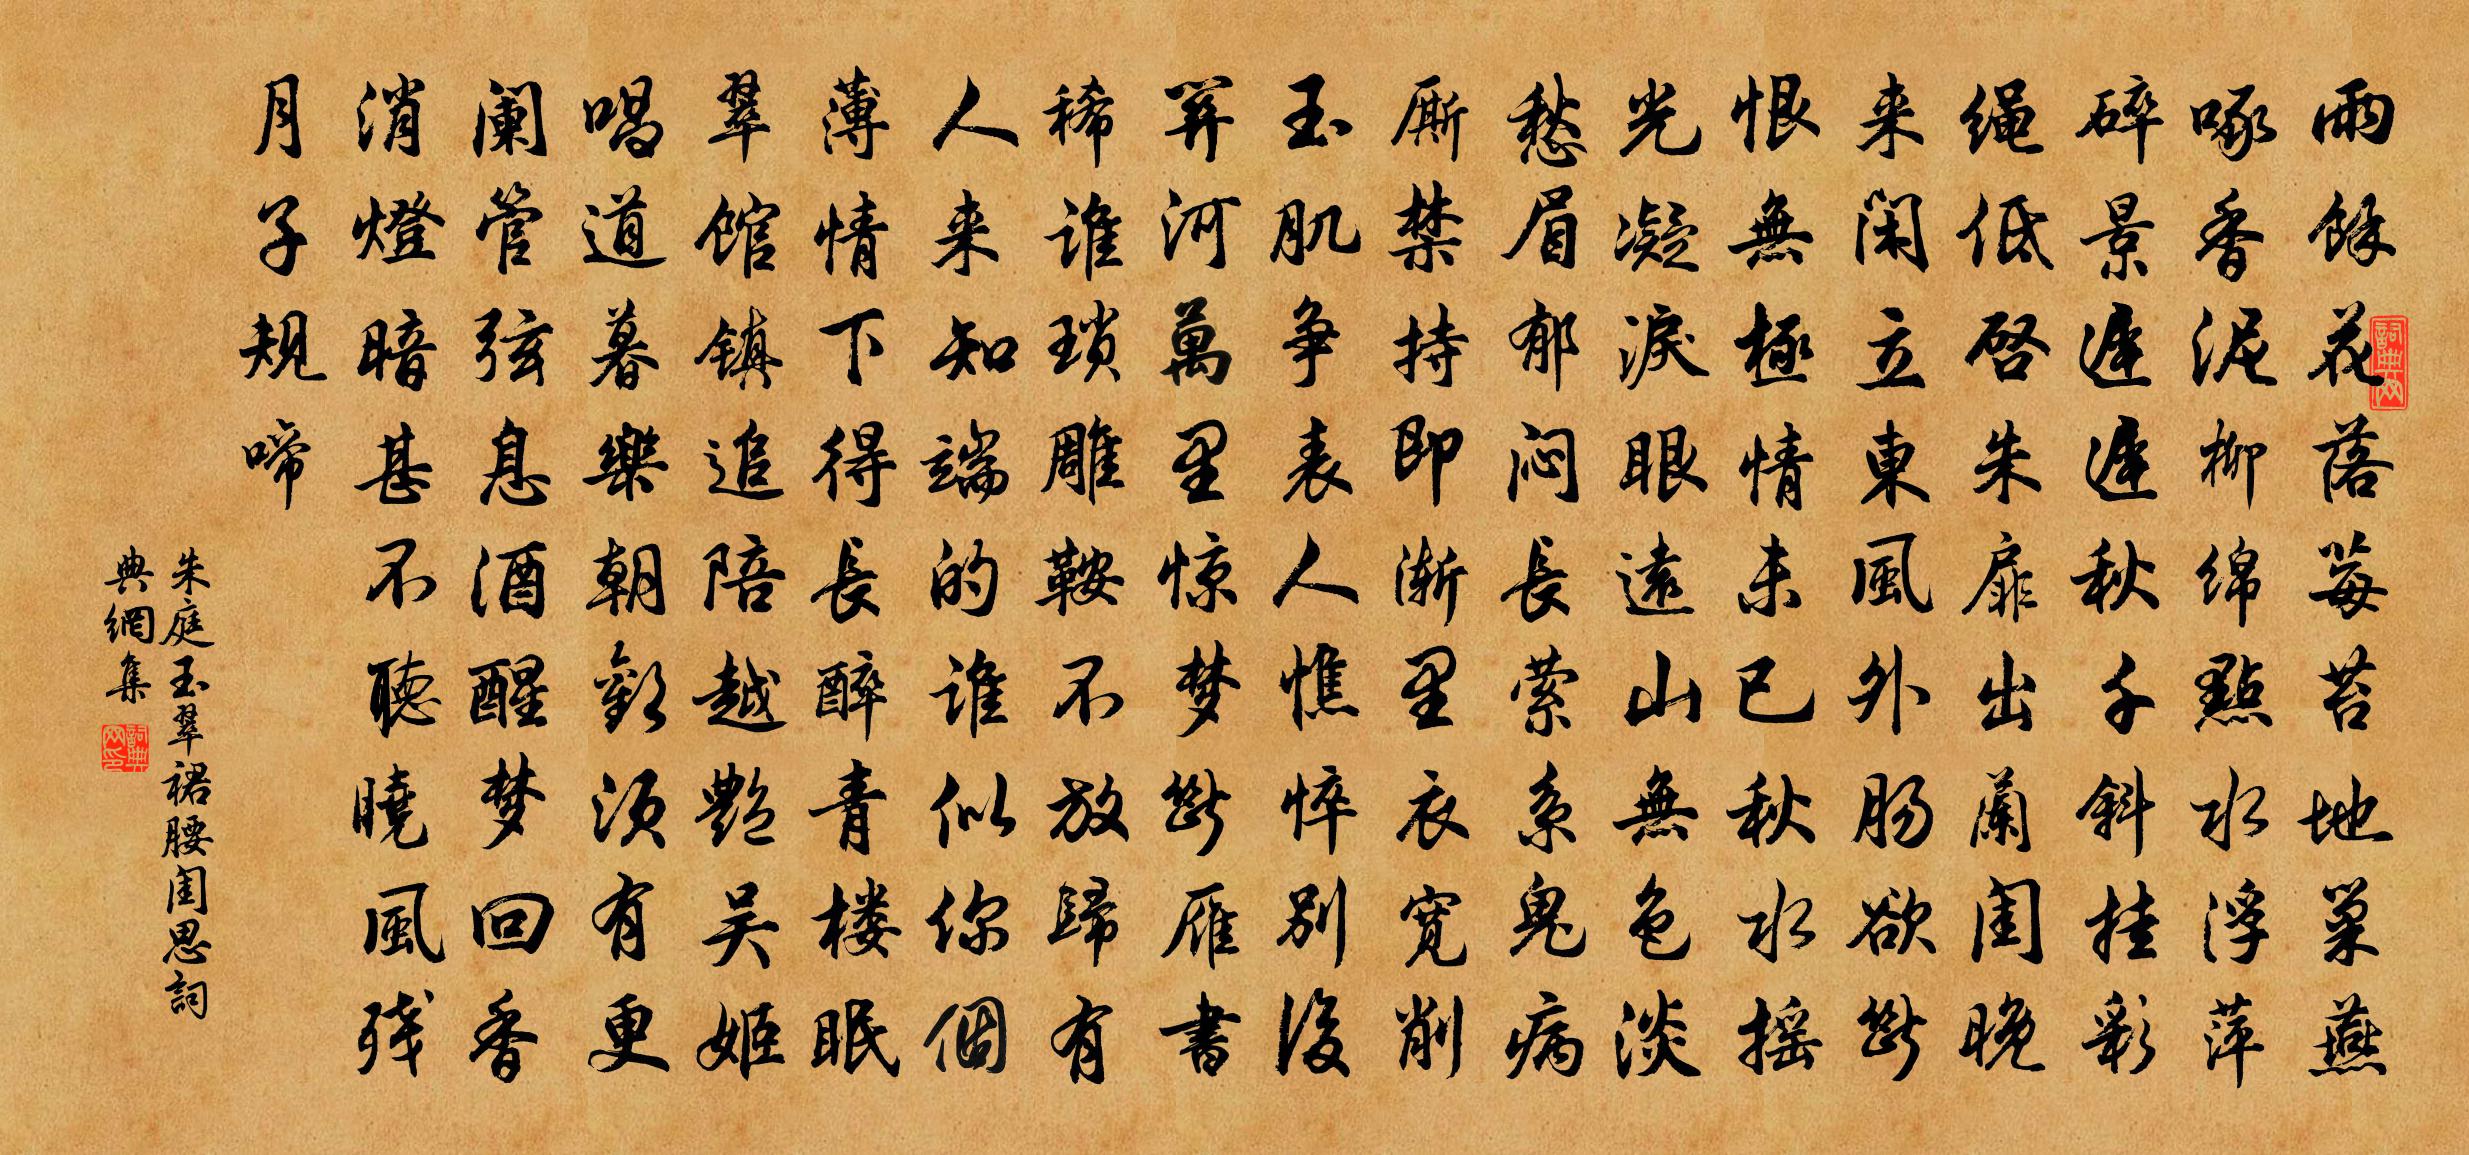 雨餘花落莓苔地巢燕
啄香泥柳绵點水浮萍
碎景遲遲秋千斜挂彩
绳低啓朱扉出蘭閨晚
来闲立東風外肠欲斷
恨無極情未已秋水摇
光凝淚眼遠山無色淡
愁眉郁闷長萦系鬼病
厮禁持即渐里衣寬削
玉肌争表人憔悴别後
關河萬里惊梦斷雁書
稀谁琐雕鞍不放歸有
人来知端的谁似你個
薄情下得長醉青楼眠
翠馆镇追陪越艷吴姬
唱道暮樂朝歡须有更
阑管弦息酒醒梦回香
消燈暗甚不聽曉風残
月子规啼
朱庭玉翠裙腰閨思詞
典網集
詞典网
詞典网印